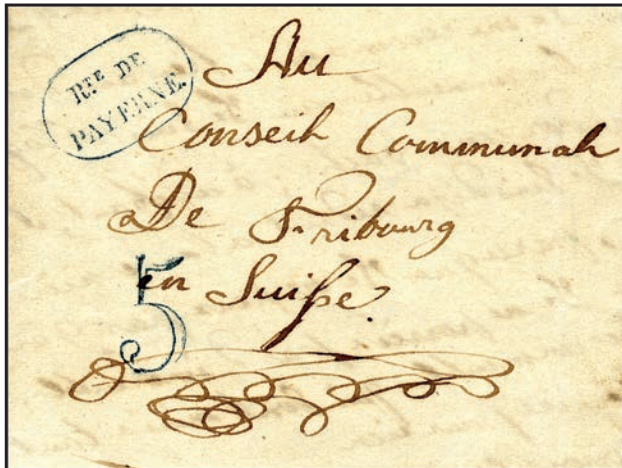 RTE DE
PAYERNE
Au
Conseil Communal
De Fribourg
en Suisse.
5